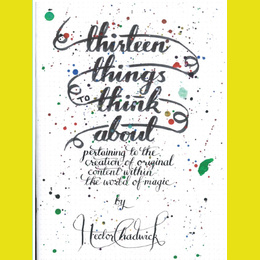 thirteen
things
TO
think
about
pertaining to the
creation of original
content within
the world of magic
by
Hector Chadwick